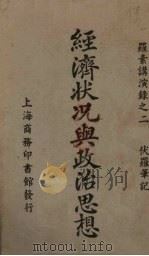 羅素講演錄之二　伏羅筆記
經濟狀况與政治思想
上海商務印書館發行
www.toowiki.info